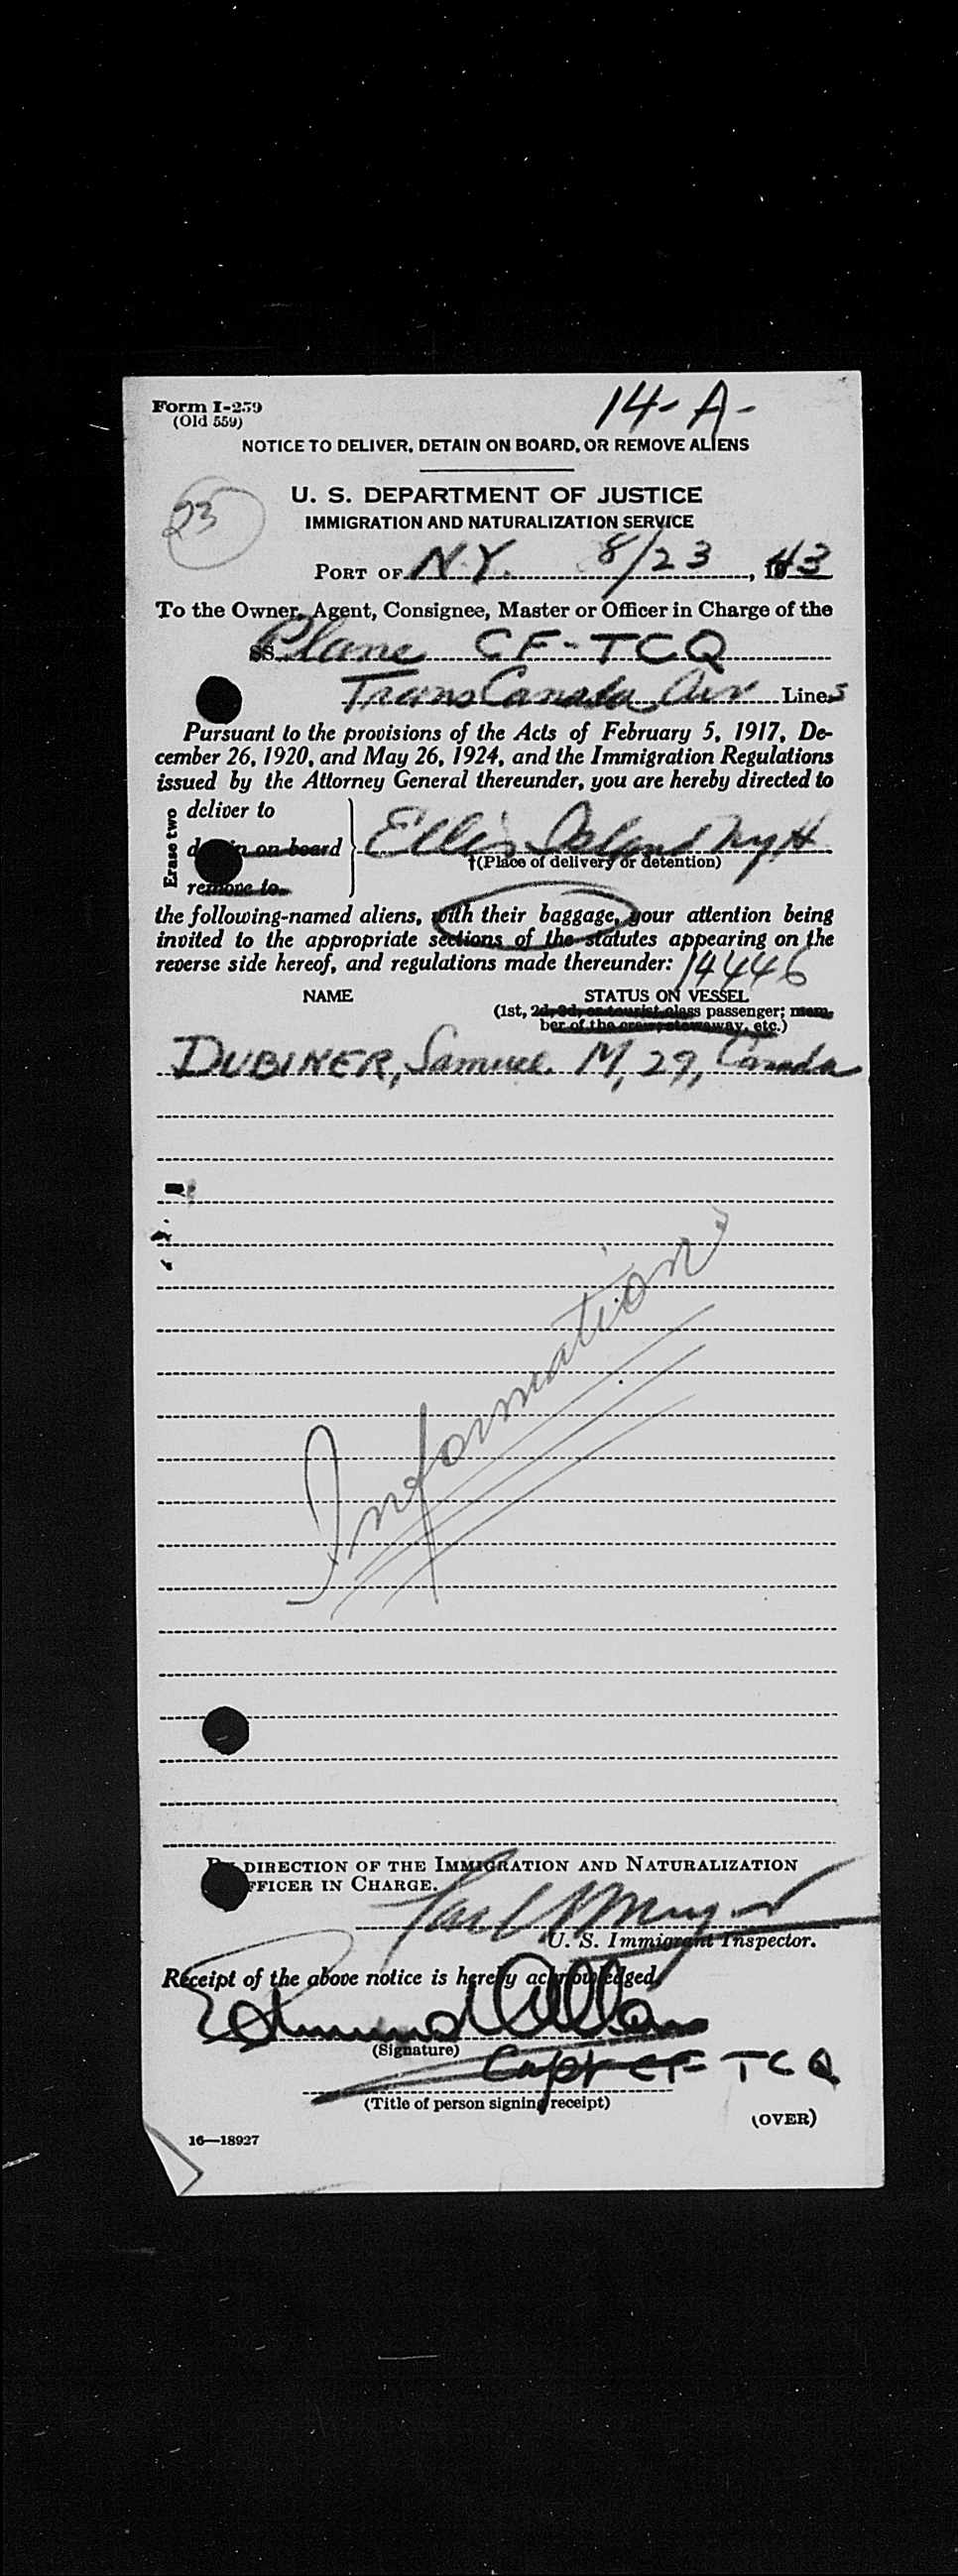 Form I-259
(Old 559)
14-A-
NOTICE TO DELIVER, DETAIN ON BOARD, OR REMOVE ALIENS
U. S. DEPARTMENT OF JUSTICE
23
IMMIGRATION AND NATURALIZATION SERVICE
PORT OF N.Y. 8/23, 1943
To the Owner, Agent, Consignee, Master or Officer in Charge of the
SS Plane CF-TCQ
Trans Canada Air Lines
Pursuant to the provisions of the Acts of February 5, 1917, De-
cember 26, 1920, and May 26, 1924, and the Immigration Regulations
issued by the Attorney General thereunder, you are hereby directed to
Erase two
deliver to
detain on board
Ellis Island NYH
†(Place of delivery or detention)
remove to
the following-named aliens, with their baggage, your attention being
invited to the appropriate sections of the statutes appearing on the
reverse side hereof, and regulations made thereunder: 14446
NAME STATUS ON VESSEL
(1st, 2d, 3d, or tourist class passenger; mem-
ber of the crew, stowaway, etc.)
DUBINER, Samuel. M, 29, Canada
Information
BY DIRECTION OF THE IMMIGRATION AND NATURALIZATION
OFFICER IN CHARGE.
U. S. Immigrant Inspector.
Receipt of the above notice is hereby acknowledged.
Edmund Allan
(Signature)
Capt CF-TCQ
(Title of person signing receipt)
(OVER)
16—18927